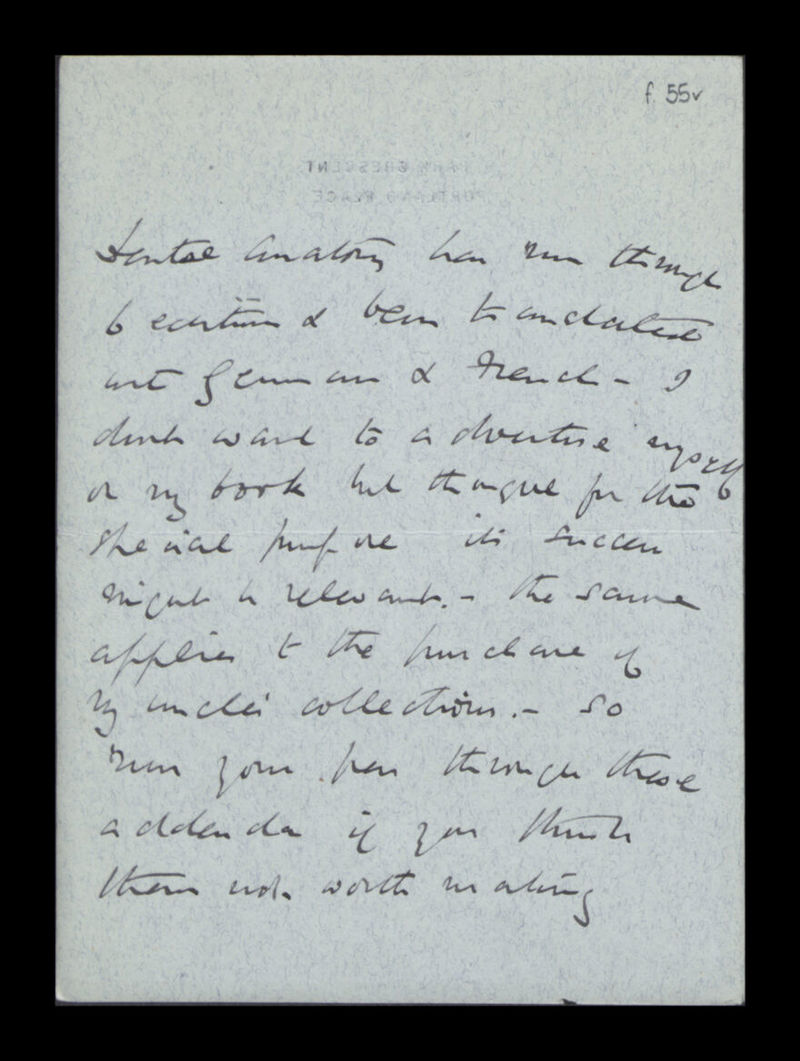 f. 55v
PARK CRESCENT
PORTLAND PLACE
Dental Anatomy has run through
6 editions & been translated
into German & French - I
dont want to advertise myself
or my book but thought for the
special purpose its success
might be relevant. - the same
applies to the purchase of
my uncles collections. - So
run your pen through these
addenda if you think
them not worth making